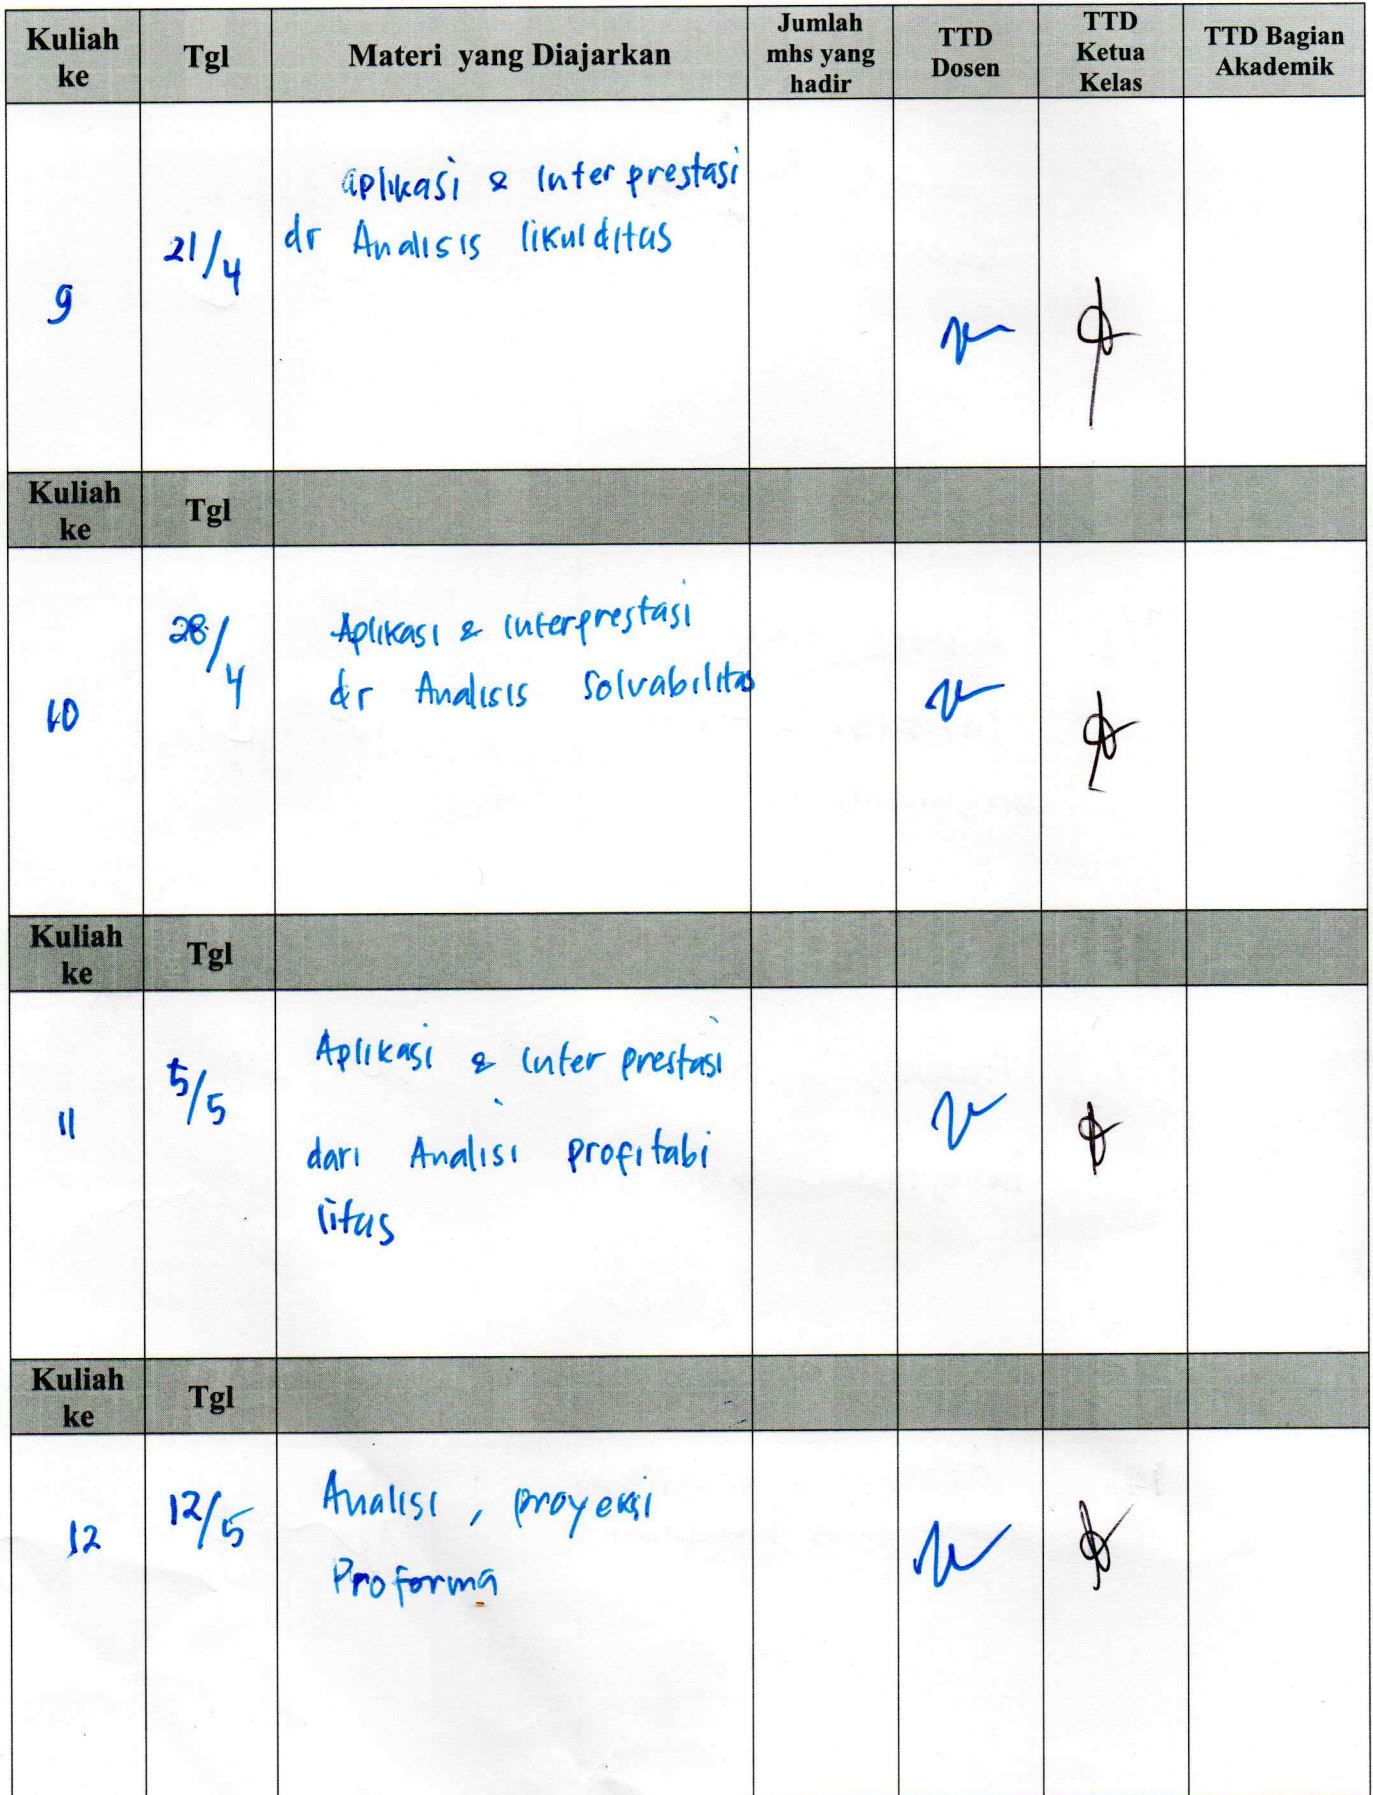 Kuliah ke Tgl Materi yang Diajarkan Jumlah mhs yang hadir TTD Dosen TTD Ketua Kelas TTD Bagian Akademik
aplikasi & Inter prestasi
dr Analisis likulditas
21/4
9
Kuliah ke Tgl
28/4 Aplikasi & interprestasi
dr Analisis Solvabilitas
10
Kuliah ke Tgl
Aplikasi & inter prestasi
5/5
11
dari Analisi profitabi
litas
Kuliah ke Tgl
12/5 Analisi, proyeksi
12
Proforma